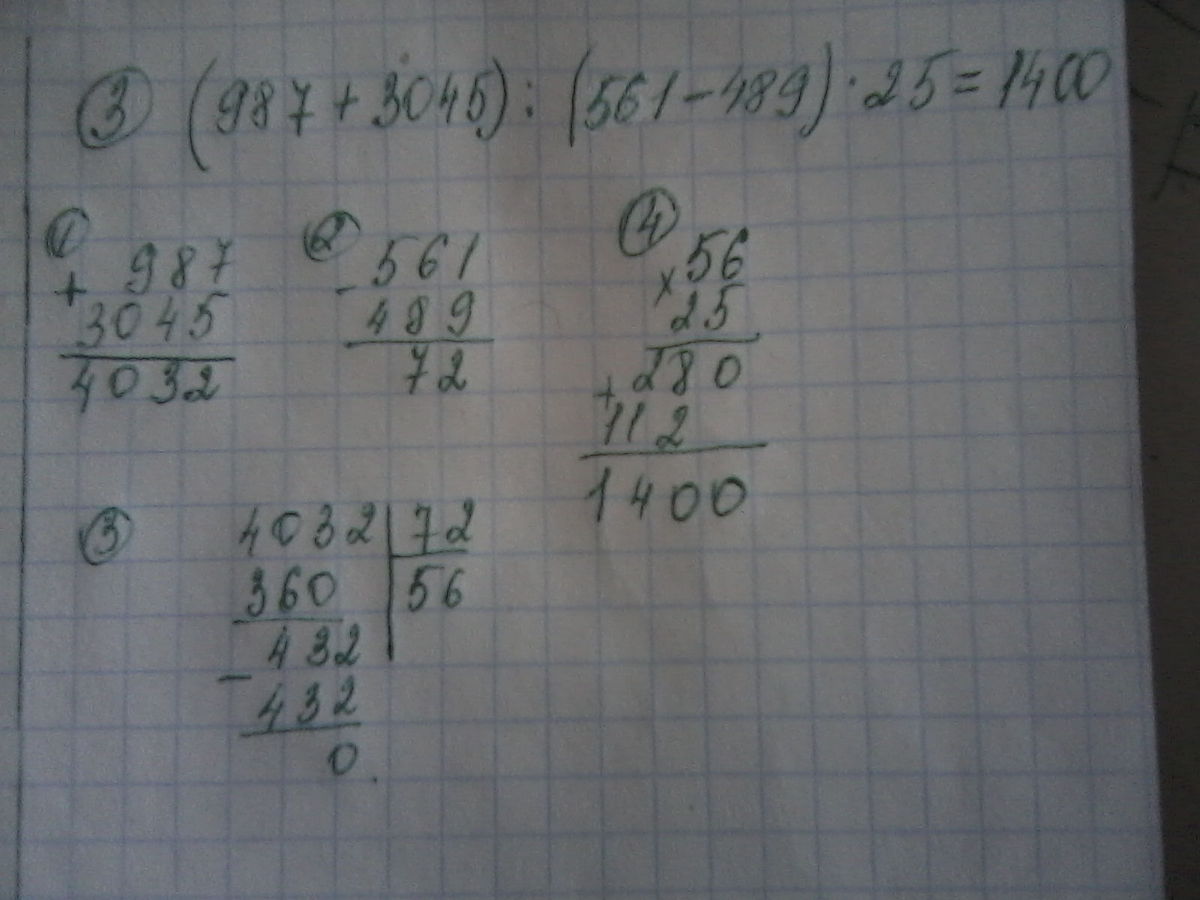 ③ (987+3045):(561-489)·25=1400
①
+ 987
3045
4032
②
- 561
489
72
④
× 56
25
280
+
112
1400
③
4032 | 72
360 | 56
432
-
432
0.